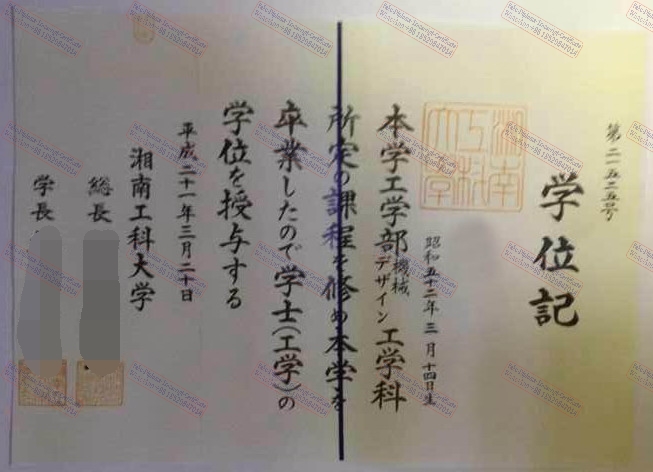 第二一五二五号
学位記
湘南工科大学
昭和五十二年三月十四日生
本学工学部機械デザイン工学科
所定の課程を修め本学を
卒業したので学士(工学)の
学位を授与する
平成二十一年三月二十日
湘南工科大学
総長
学長